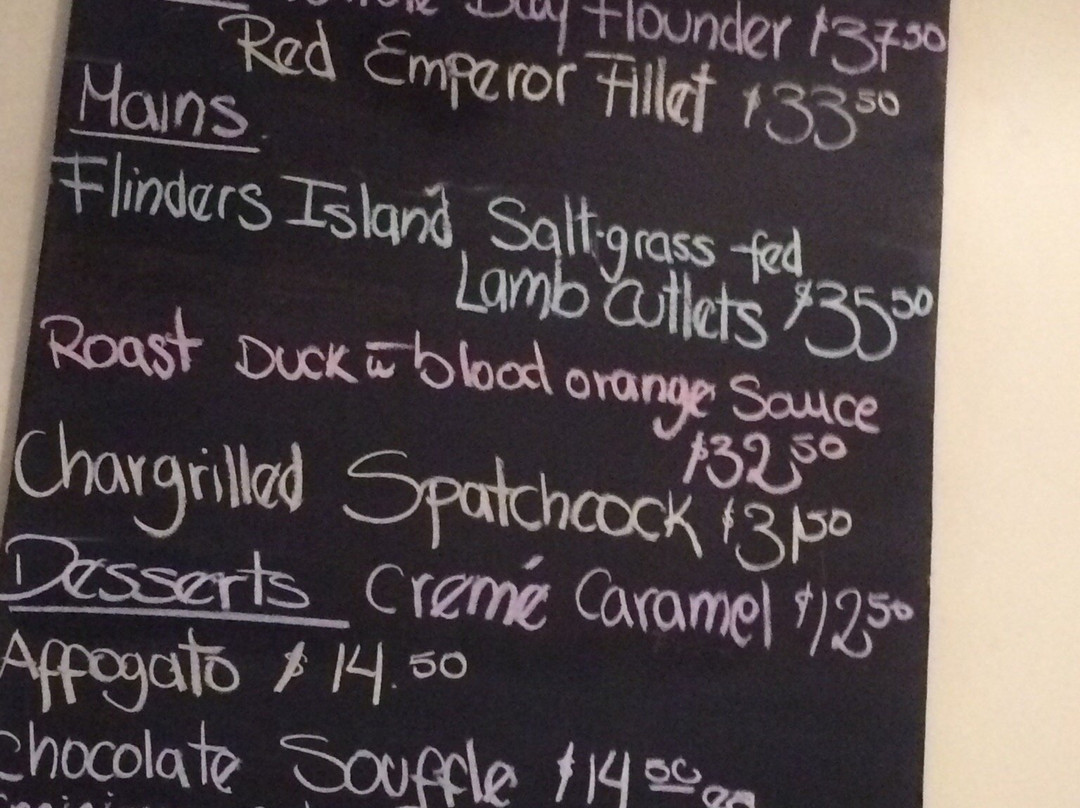 Bay Flounder $37.50
Red Emperor Fillet $33.50
Mains
Flinders Island Salt-grass-fed
Lamb Cutlets $35.50
Roast Duck w blood orange Sauce
$32.50
Chargrilled Spatchcock $31.50
Desserts Cremé Caramel $12.50
Affogato $14.50
Chocolate Souffle $14.50